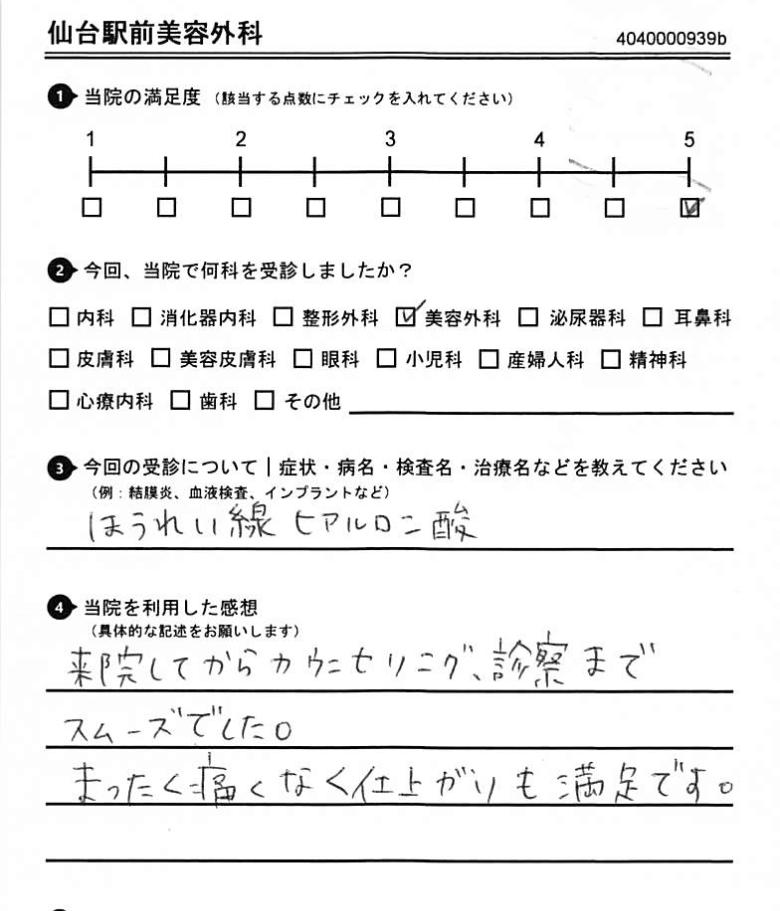 仙台駅前美容外科 4040000939b
1 当院の満足度 (該当する点数にチェックを入れてください)
1 2 3 4 5
□ □ □ □ □ □ □ □ ☑
2 今回、当院で何科を受診しましたか?
□ 内科 □ 消化器内科 □ 整形外科 ☑ 美容外科 □ 泌尿器科 □ 耳鼻科
□ 皮膚科 □ 美容皮膚科 □ 眼科 □ 小児科 □ 産婦人科 □ 精神科
□ 心療内科 □ 歯科 □ その他
3 今回の受診について | 症状・病名・検査名・治療名などを教えてください
(例:結膜炎、血液検査、インプラントなど)
ほうれい線 ヒアルロン酸
4 当院を利用した感想
(具体的な記述をお願いします)
来院してからカウンセリング、診察まで
スムーズでした。
まったく痛くなく仕上がりも満足です。